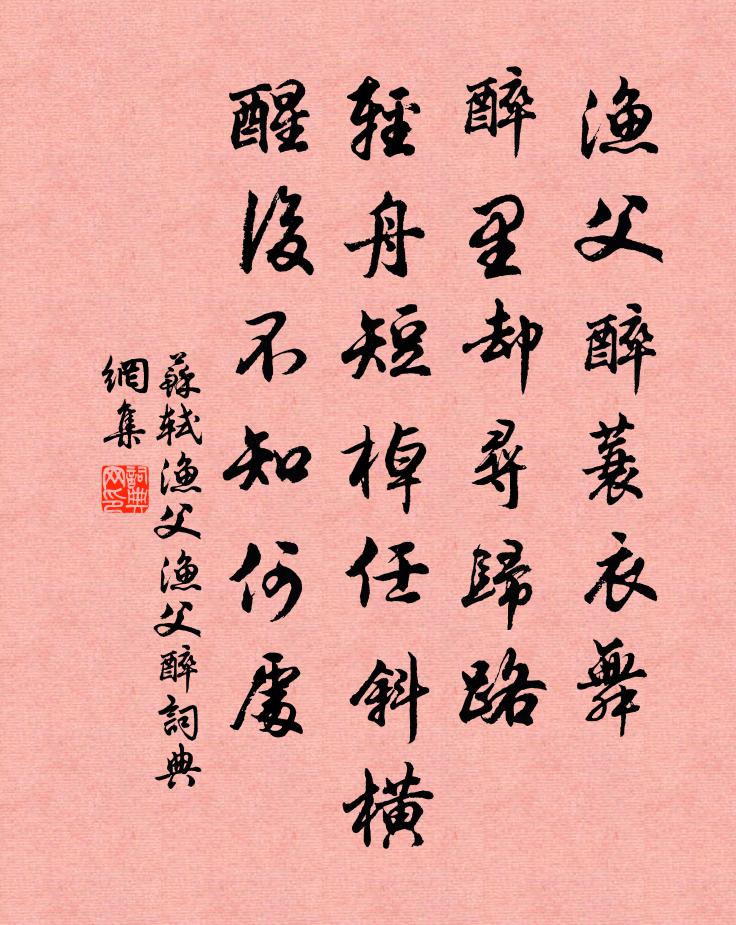 漁父醉蓑衣舞
醉里却尋歸路
輕舟短棹任斜橫
醒後不知何處
蘇軾漁父漁父醉詞典
網集
詞典
网印